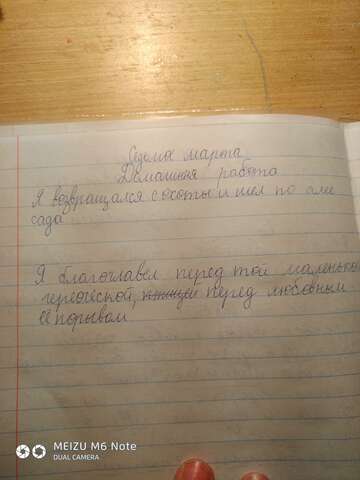 Седьмое марта
Домашняя работа
Я возвращался с охоты и шел по алее
сада
Я благоглавел перед той маленькой
героической, перед любовным
её порывом
MEIZU M6 Note
DUAL CAMERA